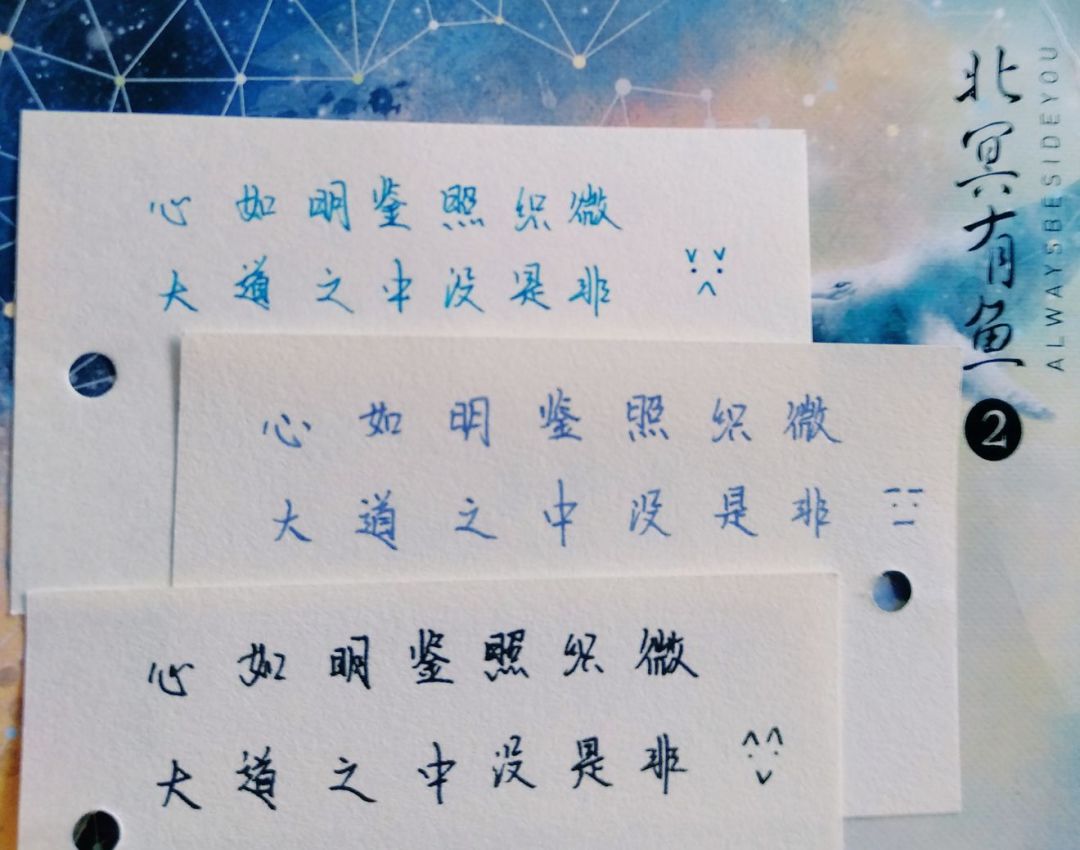 心如明鉴照织微
大道之中没是非
心如明鉴照织微
大道之中没是非
心如明鉴照织微
大道之中没是非
北冥有鱼
2
ALWAYSBESIDEYOU